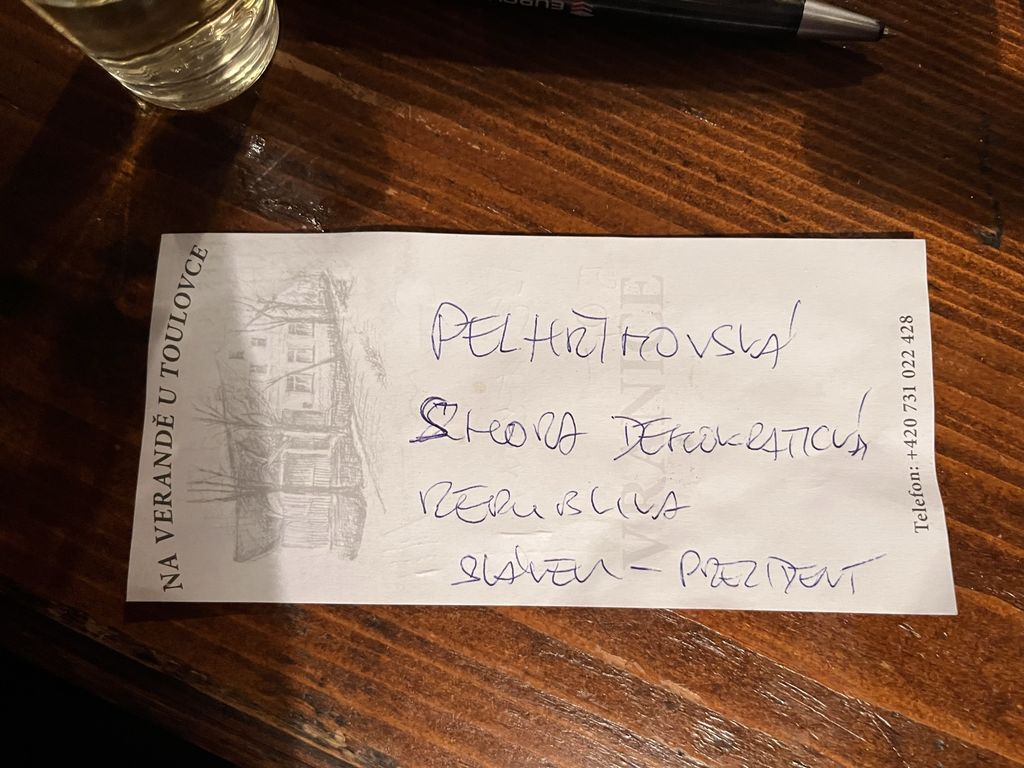 NA VERANDĚ U TOULOVCE
PELHŘIMOVSKÁ
DEMOKRATICKÁ
REPUBLIKA
SLÁVEK - PREZIDENT
Telefon: +420 731 022 428